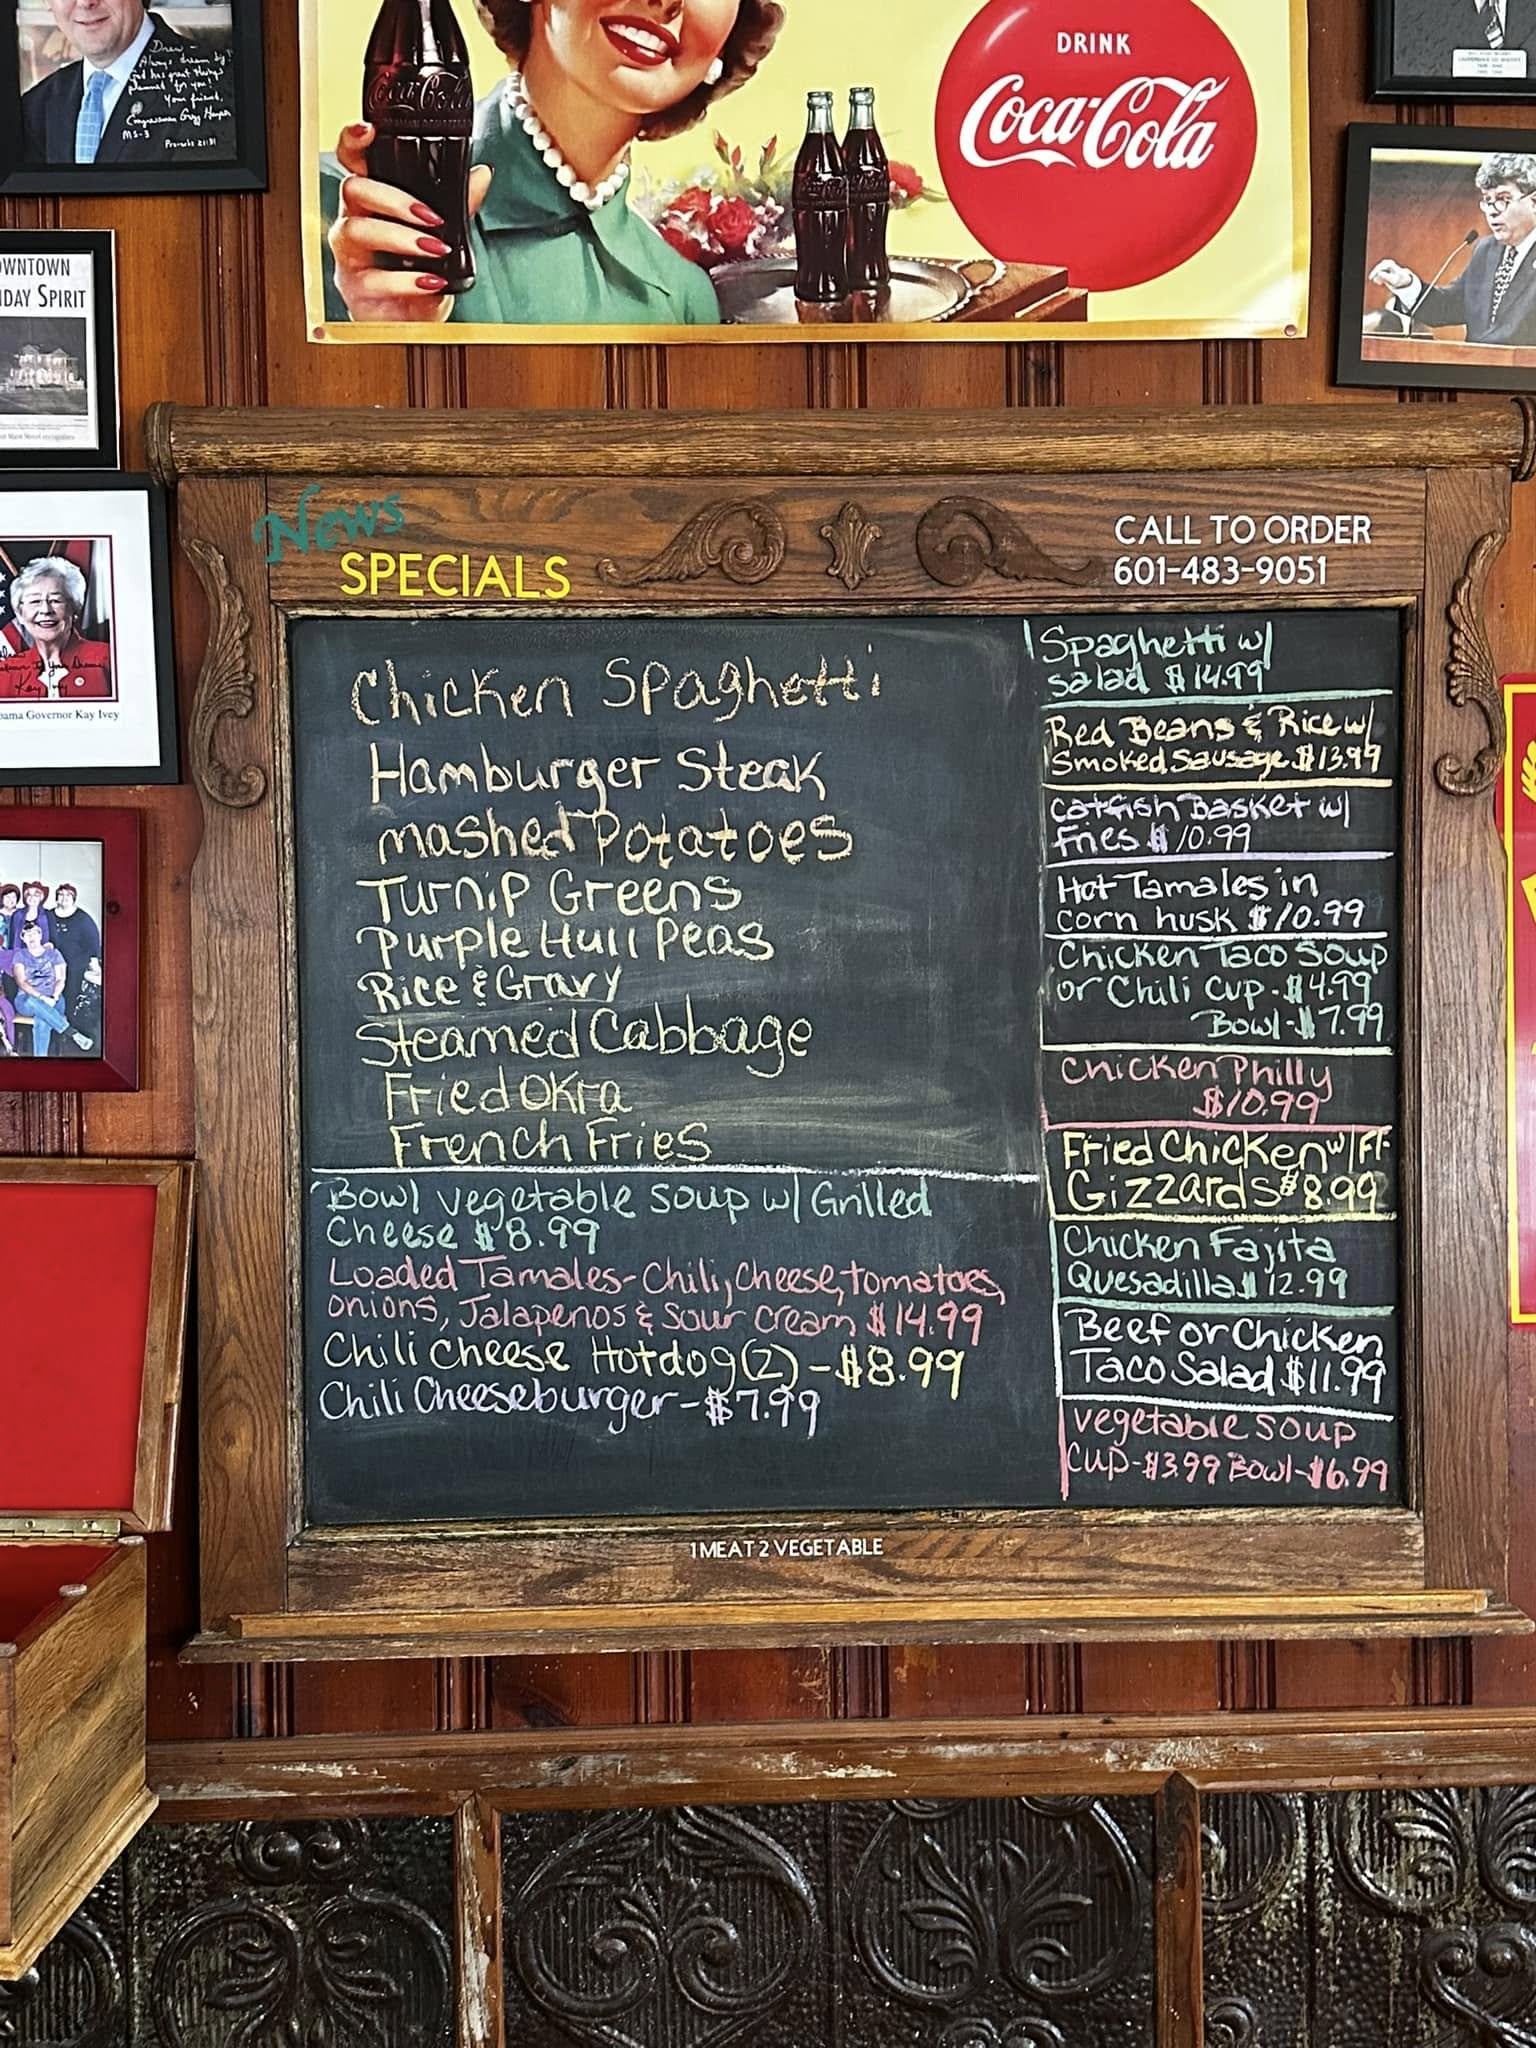 Drew -
Always dream big!
God has great things
planned for you!
Your friend,
Congressman Gregg Harper
MS-3
Proverbs 21:31
Coca-Cola
DRINK
Coca-Cola
OWNTOWN
IDAY SPIRIT
Kay Ivey
bama Governor Kay Ivey
News
SPECIALS
CALL TO ORDER
601-483-9051
Chicken Spaghetti
Hamburger Steak
mashed Potatoes
Turnip Greens
Purple Hull Peas
Rice & Gravy
Steamed Cabbage
Fried Okra
French Fries
Bowl vegetable soup w/ Grilled
Cheese $8.99
Loaded Tamales- Chili, cheese, tomatoes,
onions, Jalapenos & Sour cream $14.99
Chili cheese Hotdog (2) - $8.99
Chili Cheeseburger - $7.99
Spaghetti w/
salad $14.99
Red Beans & Rice w/
Smoked Sausage $13.99
Catfish Basket w/
Fries $10.99
Hot Tamales in
corn husk $10.99
Chicken Taco Soup
or Chili Cup - $4.99
Bowl - $7.99
Chicken Philly
$10.99
Fried Chicken w/ FF
Gizzards $8.99
Chicken Fajita
Quesadilla $12.99
Beef or Chicken
Taco Salad $11.99
vegetable soup
Cup - $3.99 Bowl - $6.99
1 MEAT 2 VEGETABLE